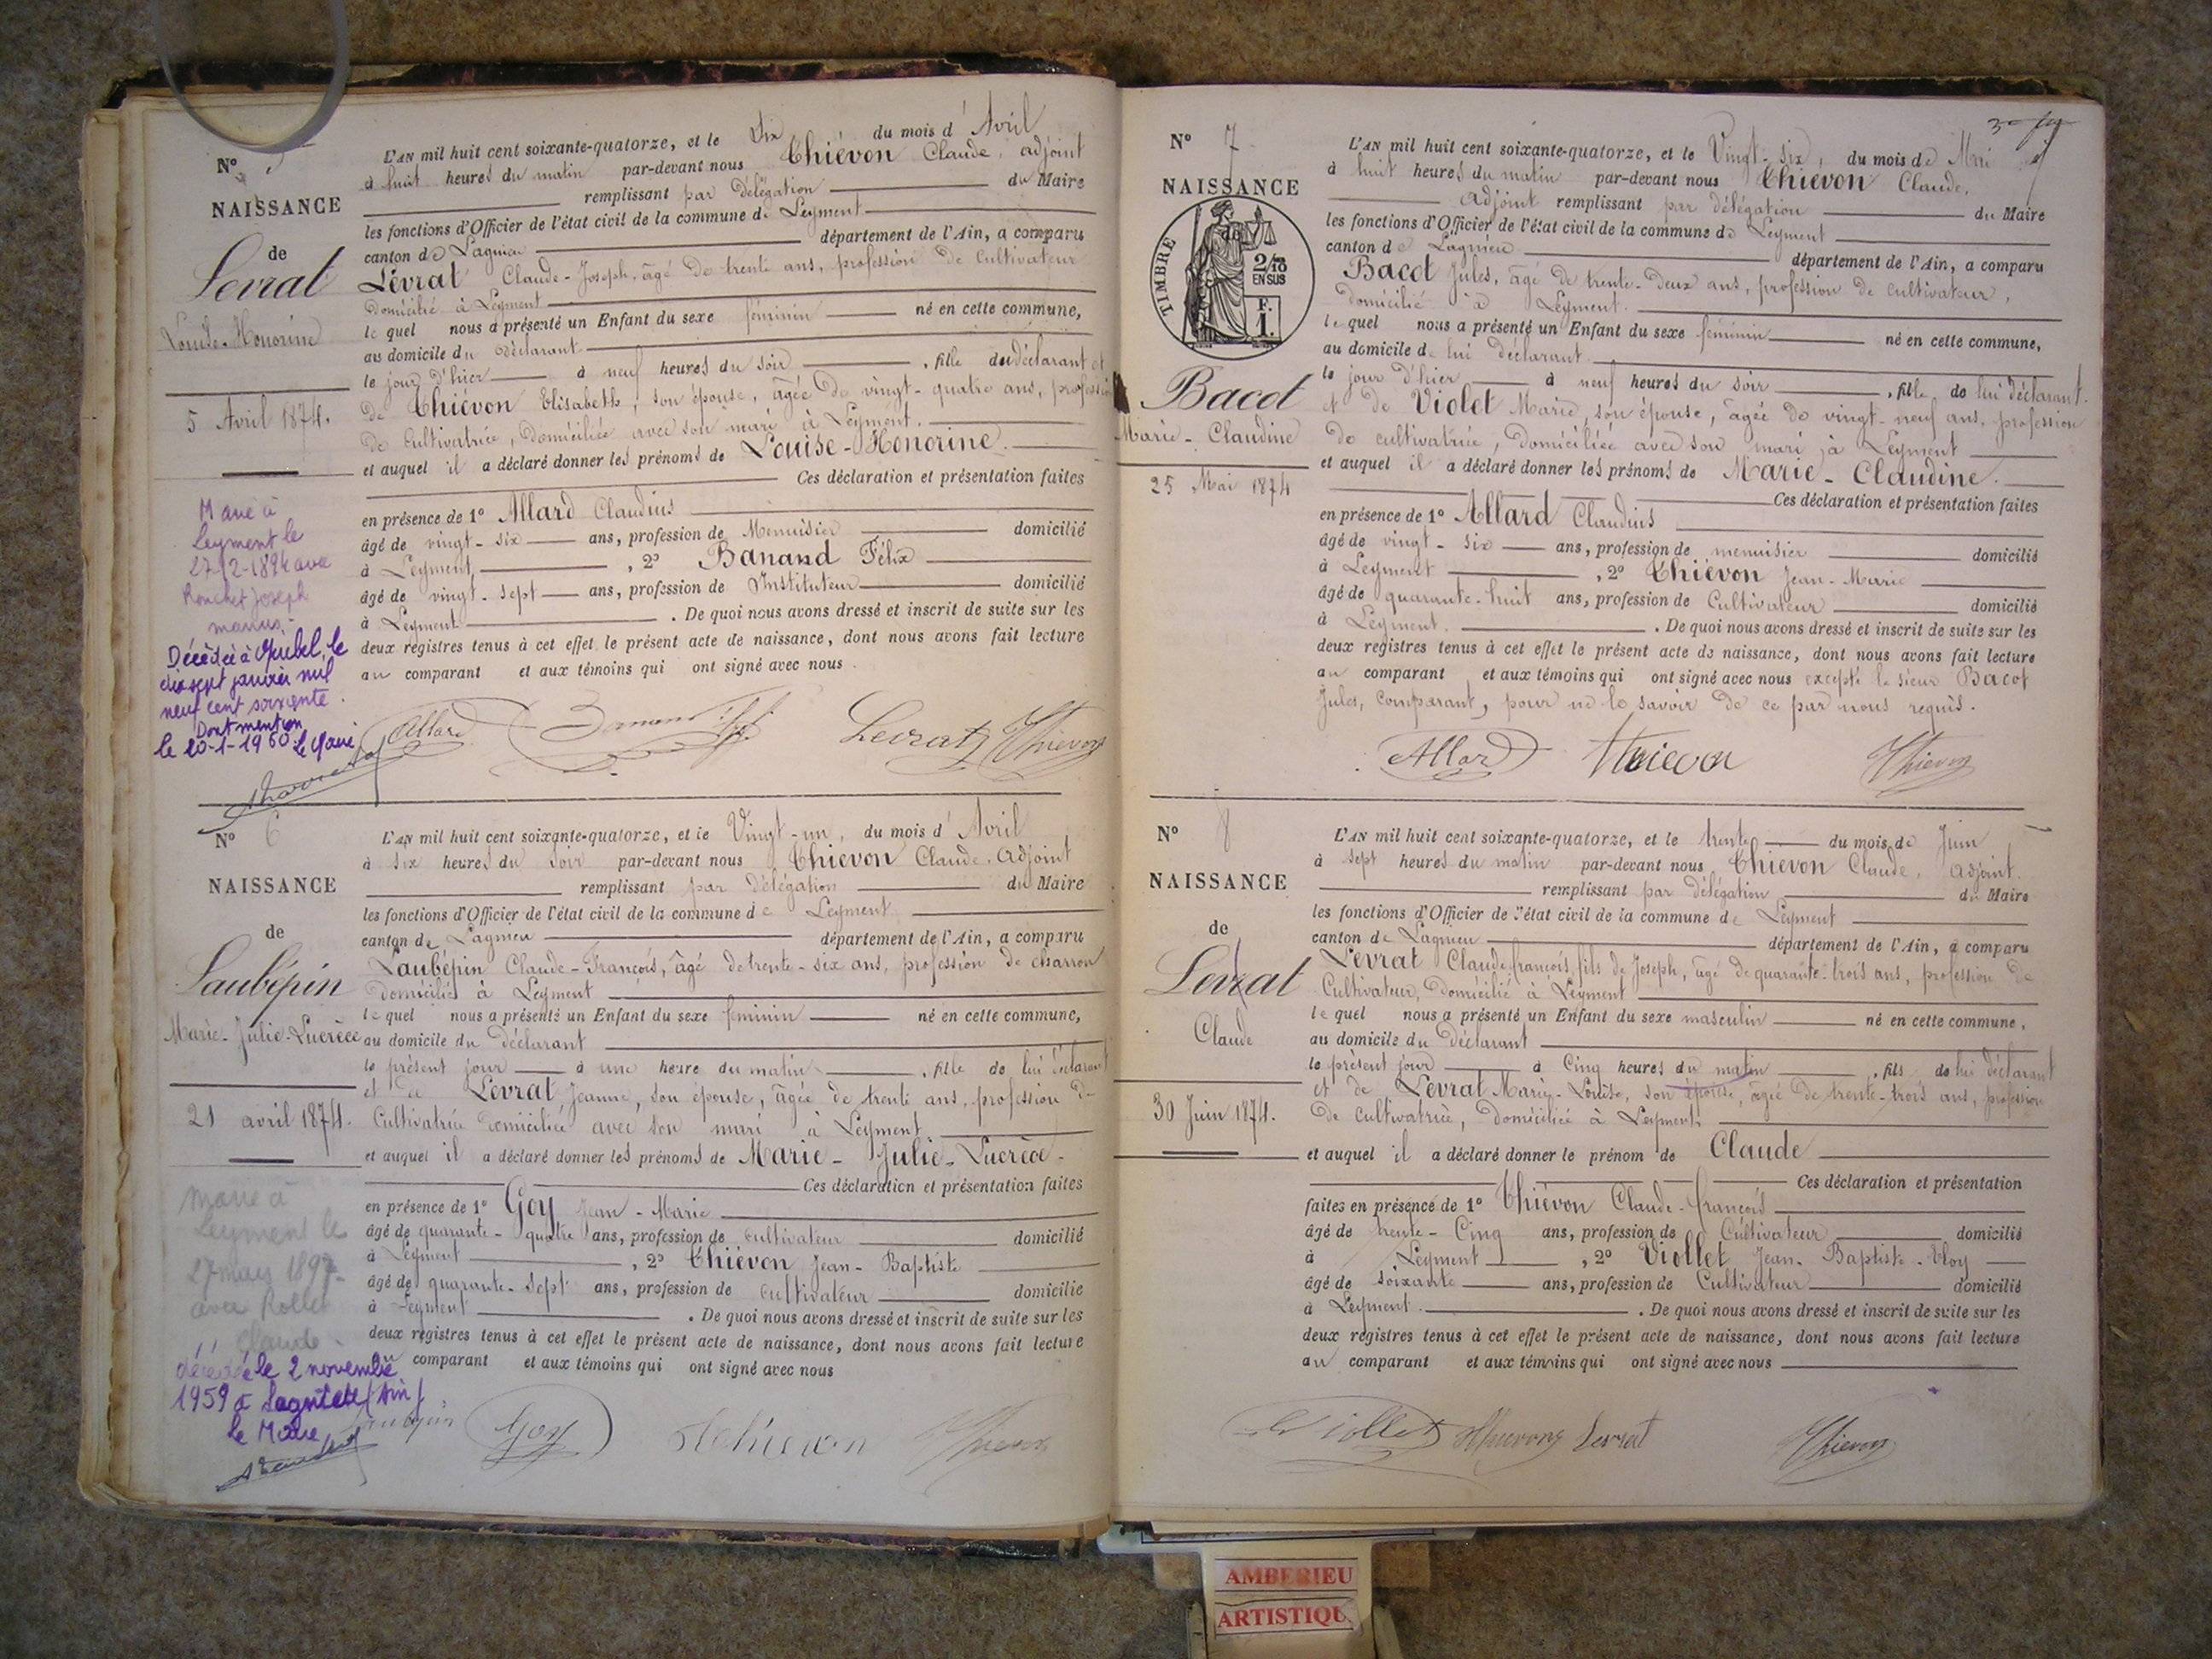 N° 5
NAISSANCE
de
Levrat
Louise-Honorine
5 Avril 1874.
Marié à
Leyment le
avec
Joseph
Décédée à Miribel, le
dix sept janvier mil
neuf cent soixante.
Dont mention
le 20-1-1960 Le Maire
L'AN mil huit cent soixante-quatorze, et le Six du mois d'Avril
à huit heures du matin par-devant nous Thiévon Claude, adjoint
remplissant par Délégation du Maire
les fonctions d'Officier de l'état civil de la commune de Leyment
canton de Lagnieu département de l'Ain, a comparu
Levrat Claude-Joseph, âgé de trente ans, profession de Cultivateur
Domicilié à Leyment
le quel nous a présenté un Enfant du sexe féminin né en cette commune,
au domicile du déclarant
le jour d'hier à neuf heures du soir , fille du déclarant et
de Thiévon Elisabeth, son épouse, âgée de vingt-quatre ans, profession
de Cultivatrice, domiciliée avec son mari à Leyment.
et auquel il a déclaré donner les prénoms de Louise-Honorine.
Ces déclaration et présentation faites
en présence de 1° Allard Claudius
âgé de vingt-six ans, profession de Menuisier domicilié
à Leyment , 2° Banand Félix
âgé de vingt-sept ans, profession de Instituteur domicilié
à Leyment . De quoi nous avons dressé et inscrit de suite sur les
deux registres tenus à cet effet le présent acte de naissance, dont nous avons fait lecture
au comparant et aux témoins qui ont signé avec nous.
Allard Levrat Thievon
N° 6
NAISSANCE
de
Laubépin
Marie-Julie-Lucrèce
21 avril 1874.
Marié à
Leyment le
27 mars 1897
avec Rollet
Claude
décédée le 2 novembre
1959 à Lagnieu (Ain)
le Maire
L'AN mil huit cent soixante-quatorze, et le Vingt-un, du mois d'Avril
à six heures du soir par-devant nous Thiévon Claude, Adjoint
remplissant par délégation du Maire
les fonctions d'Officier de l'état civil de la commune de Leyment
canton de Lagnieu département de l'Ain, a comparu
Laubépin Claude-François, âgé de trente-six ans, profession de charron
domicilié à Leyment
le quel nous a présenté un Enfant du sexe féminin né en cette commune,
au domicile du déclarant
le présent jour à une heure du matin , fille de lui déclarant
et de Levrat Jeanne, son épouse, âgée de trente ans, profession de
Cultivatrice domiciliée avec son mari à Leyment
et auquel il a déclaré donner les prénoms de Marie-Julie-Lucrèce-
Ces déclaration et présentation faites
en présence de 1° Goy Jean-Marie
âgé de quarante-quatre ans, profession de cultivateur domicilié
à Leyment , 2° Thiévon Jean-Baptiste
âgé de quarante-sept ans, profession de cultivateur domicilié
à Leyment . De quoi nous avons dressé et inscrit de suite sur les
deux registres tenus à cet effet le présent acte de naissance, dont nous avons fait lecture
au comparant et aux témoins qui ont signé avec nous
Laubépin Goy Thiévon Thievon
N° 7
NAISSANCE
de
TIMBRE
2/10
EN SUS
F.
1.
Bacot
Marie-Claudine
25 Mai 1874
L'AN mil huit cent soixante-quatorze, et le Vingt-six, du mois de Mai
à huit heures du matin par-devant nous Thiévon Claude,
Adjoint remplissant par délégation du Maire
les fonctions d'Officier de l'état civil de la commune de Leyment
canton de Lagnieu département de l'Ain, a comparu
Bacot Jules, âgé de trente-deux ans, profession de cultivateur,
domicilié à Leyment.
le quel nous a présenté un Enfant du sexe féminin né en cette commune,
au domicile de lui déclarant
le jour d'hier à neuf heures du soir , fille de lui déclarant.
et de Violet Marie, son épouse, âgée de vingt-neuf ans, profession
de cultivatrice, domiciliée avec son mari à Leyment
et auquel il a déclaré donner les prénoms de Marie-Claudine.
Ces déclaration et présentation faites
en présence de 1° Allard Claudius
âgé de vingt-six ans, profession de menuisier domicilié
à Leyment , 2° Thiévon Jean-Marie
âgé de quarante-huit ans, profession de Cultivateur domicilié
à Leyment. . De quoi nous avons dressé et inscrit de suite sur les
deux registres tenus à cet effet le présent acte de naissance, dont nous avons fait lecture
au comparant et aux témoins qui ont signé avec nous excepté le sieur Bacot
Jules, comparant, pour ne le savoir de ce par nous requis.
Allard Thievon Thievon
N° 8
NAISSANCE
de
Levrat
Claude
30 Juin 1874.
L'AN mil huit cent soixante-quatorze, et le trente du mois de Juin
à sept heures du matin par-devant nous Thiévon Claude, adjoint.
remplissant par délégation du Maire
les fonctions d'Officier de l'état civil de la commune de Leyment
canton de Lagnieu département de l'Ain, a comparu
Levrat Claude françois, fils de Joseph, âgé de quarante-trois ans, profession de
Cultivateur, Domicilié à Leyment
le quel nous a présenté un Enfant du sexe masculin né en cette commune,
au domicile du Déclarant
le présent jour à Cinq heures du matin , fils de lui déclarant
et de Levrat Marie-Louise, son épouse, âgée de trente-trois ans, profession
de cultivatrice, domiciliée à Leyment
et auquel il a déclaré donner le prénom de Claude
Ces déclaration et présentation
faites en présence de 1° Thiévon Claude-françois
âgé de trente-Cinq ans, profession de Cultivateur domicilié
à Leyment , 2° Viollet Jean-Baptiste-Eloy
âgé de soixante ans, profession de Cultivateur domicilié
à Leyment. . De quoi nous avons dressé et inscrit de suite sur les
deux registres tenus à cet effet le présent acte de naissance, dont nous avons fait lecture
au comparant et aux témoins qui ont signé avec nous
Viollet Thievon Levrat Thievon
AMBERIEU
ARTISTIQU